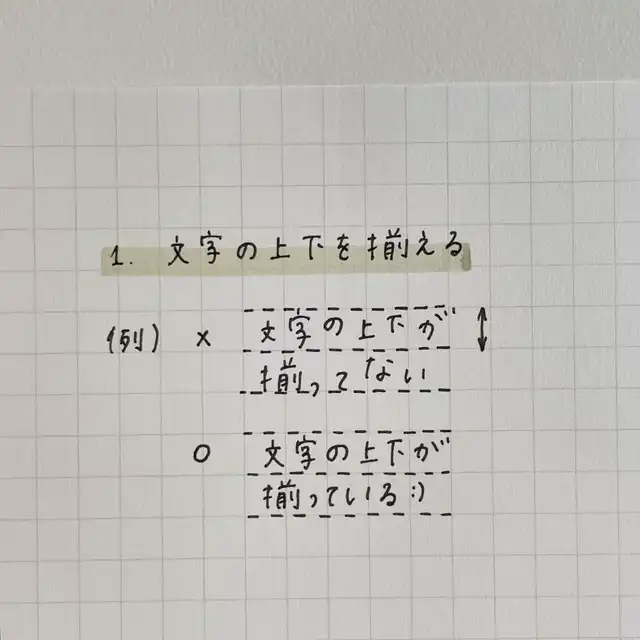 1. 文字の上下を揃える
(例) × 文字の上下が
揃ってない
○ 文字の上下が
揃っている:)